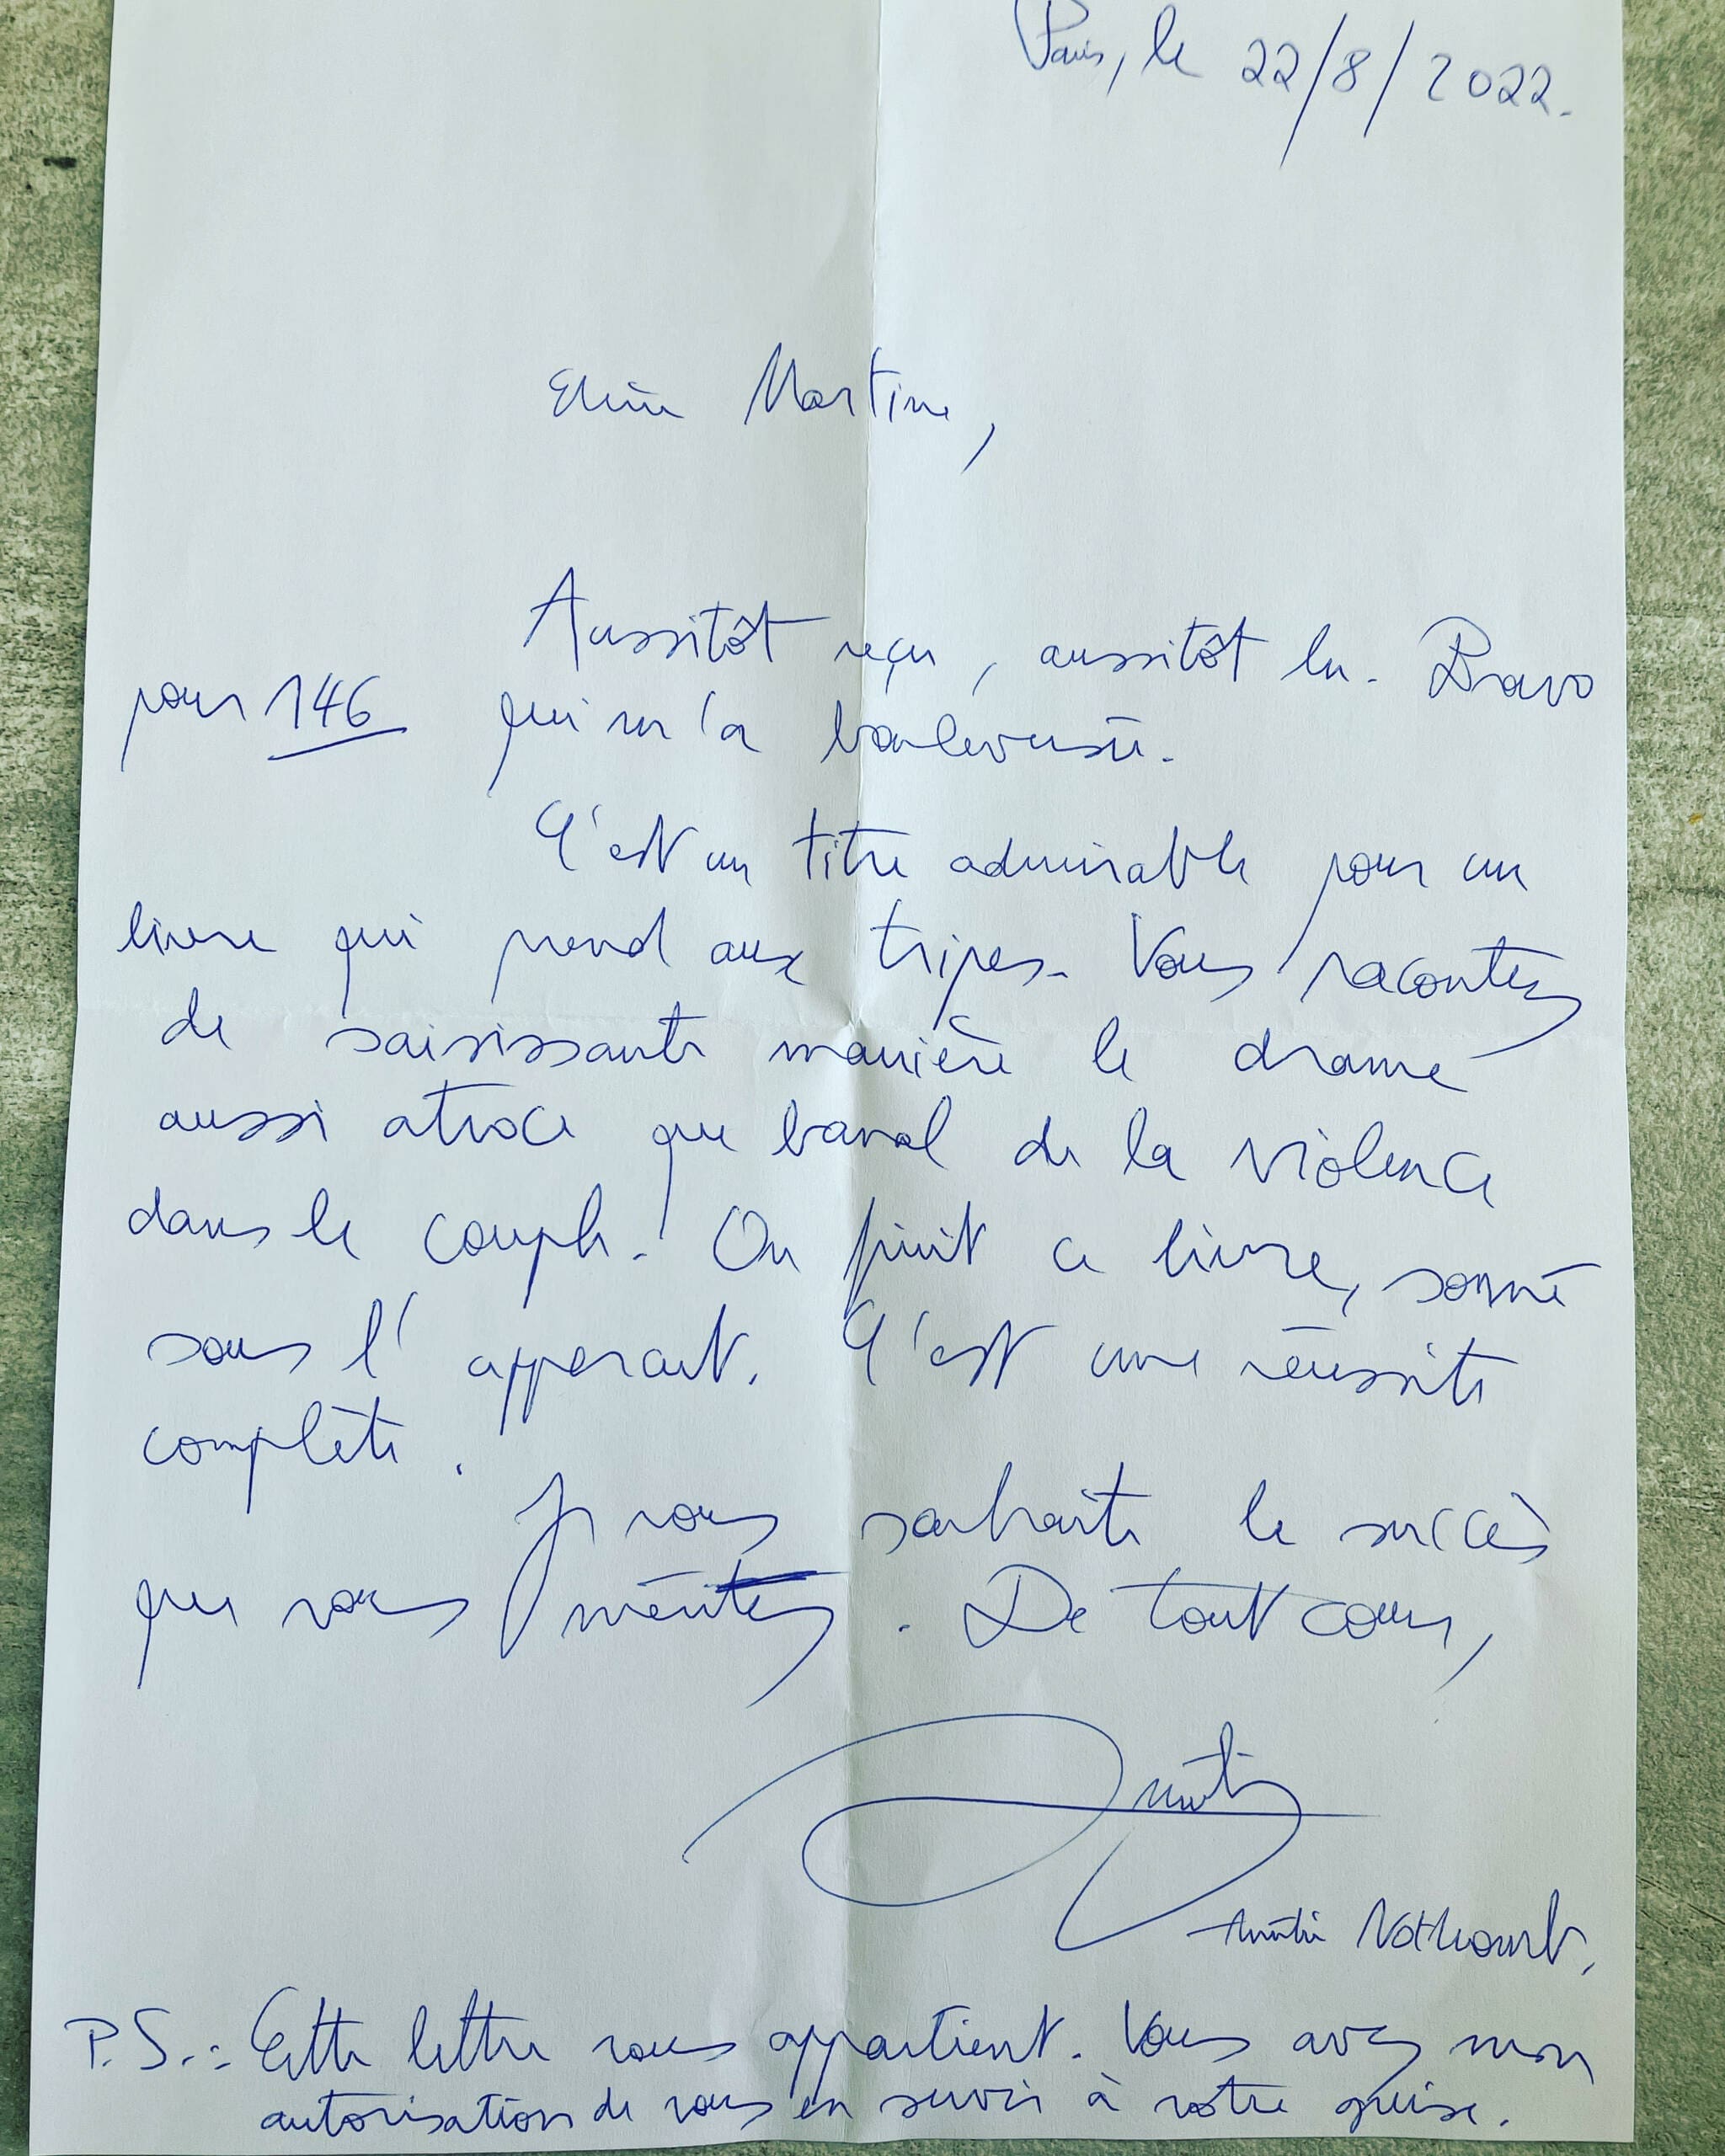 Paris, le 22/8/2022.
Chère Martine,
Aussitôt reçu, aussitôt lu. Bravo
pour 146 qui m'a bouleversée.
C'est un titre admirable pour un
livre qui prend aux tripes. Vous racontez
de saisissante manière le drame
aussi atroce que banal de la violence
dans le couple. On finit ce livre, sonné
sous l'apperait. C'est une réussite
complète.
Je vous souhaite le succès
que vous méritez. De tout cœur,
Amélie
Amélie Nothomb.
P.S.: Cette lettre vous appartient. Vous avez mon
autorisation de vous en servir à votre guise.